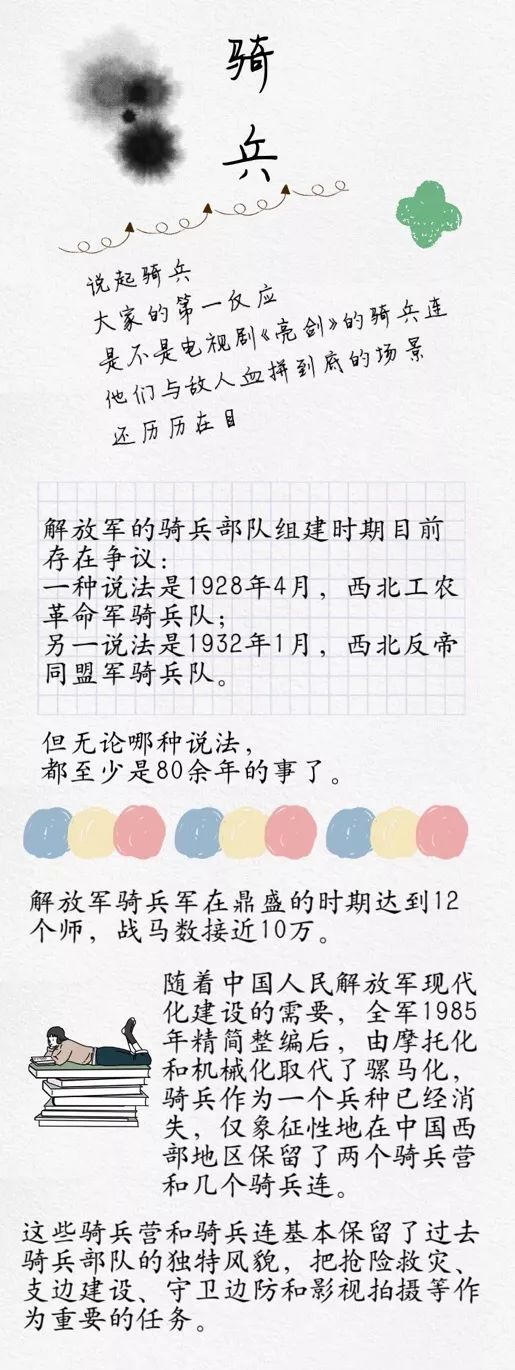 骑
兵
说起骑兵
大家的第一反应
是不是电视剧《亮剑》的骑兵连
他们与敌人血拼到底的场景
还历历在目
解放军的骑兵部队组建时期目前
存在争议：
一种说法是1928年4月，西北工农
革命军骑兵队；
另一说法是1932年1月，西北反帝
同盟军骑兵队。
但无论哪种说法，
都至少是80余年的事了。
解放军骑兵军在鼎盛的时期达到12
个师，战马数接近10万。
随着中国人民解放军现代
化建设的需要，全军1985
年精简整编后，由摩托化
和机械化取代了骡马化，
骑兵作为一个兵种已经消
失，仅象征性地在中国西
部地区保留了两个骑兵营
和几个骑兵连。
这些骑兵营和骑兵连基本保留了过去
骑兵部队的独特风貌，把抢险救灾、
支边建设、守卫边防和影视拍摄等作
为重要的任务。